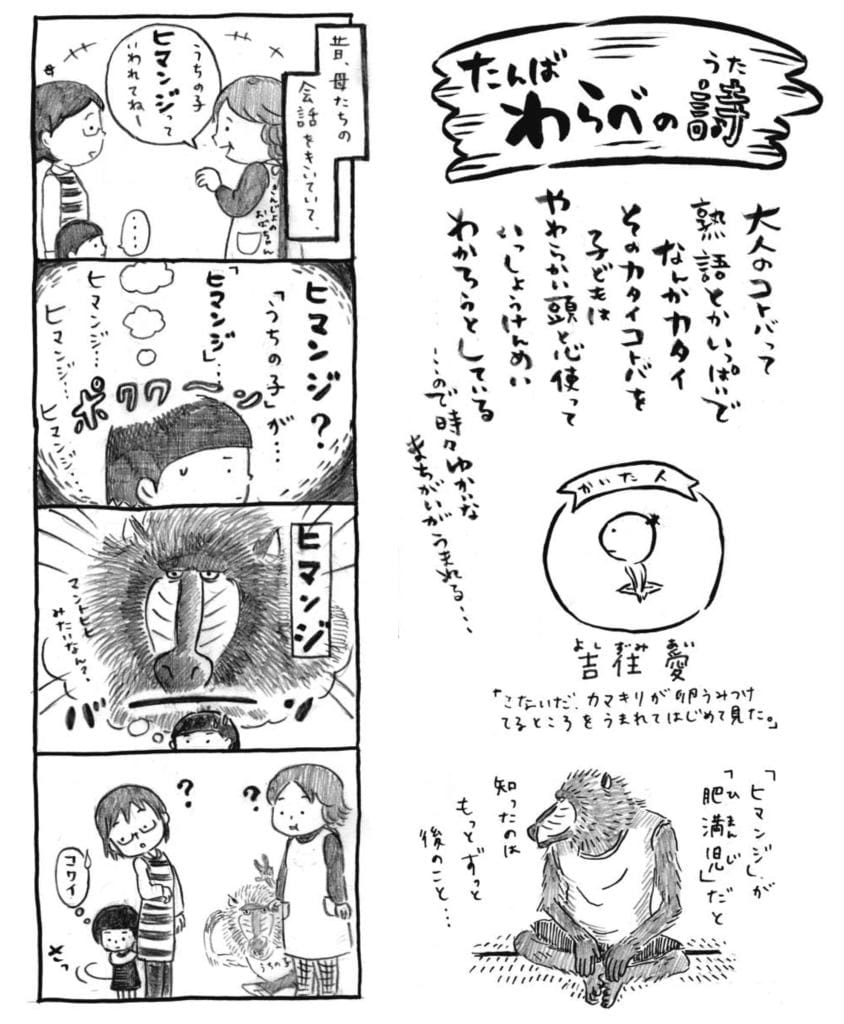 たんば
わらべの詩
うた
大人のコトバって
熟語とかいっぱいで
なんかカタイ
そのカタイコトバを
子どもは
やわらかい頭と心使って
いっしょうけんめい
わかろうとしている
…ので時々ゆかいな
まちがいがうまれる…
かいた人
よしずみあい
吉住愛
「こないだ、カマキリが卵うみつけ
てるところをうまれてはじめて見た。」
「ヒマンジ」が
「肥満児」だと
ひまんじ
知ったのは
もっとずっと
後のこと…
昔、母たちの
会話をきいていて、
うちの子
ヒマンジって
いわれてねー
母
きんじょの
おばちゃん
…
ヒマンジ?
「うちの子」が…
「ヒマンジ」…
ヒマンジ…
ヒマンジ…
ヒマンジ…
ポワワーン
ヒマンジ
マントヒヒ
みたいなんで。
バーン
?
?
コワイ
さっ
うちの子